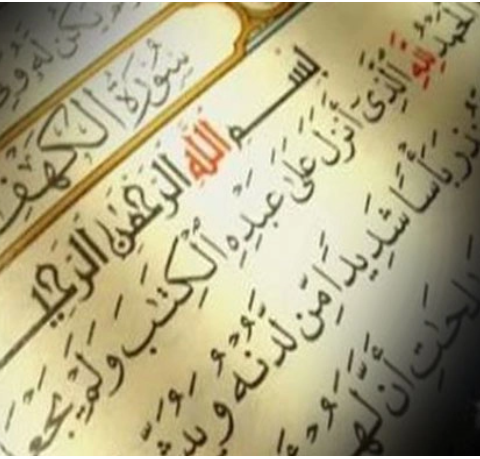 يَكُن لَّهُ
سُورَةُ الكَهْفِ
بِسْمِ اللَّهِ الرَّحْمَٰنِ الرَّحِيمِ
الْحَمْدُ لِلَّهِ الَّذِىٓ أَنزَلَ عَلَىٰ عَبْدِهِ الْكِتَٰبَ وَلَمْ يَجْعَل
نذِرَ بَأْسًا شَدِيدًا مِّن لَّدُنْهُ وَيُبَشِّ
لِحَٰتِ أَنَّ لَهُمْ